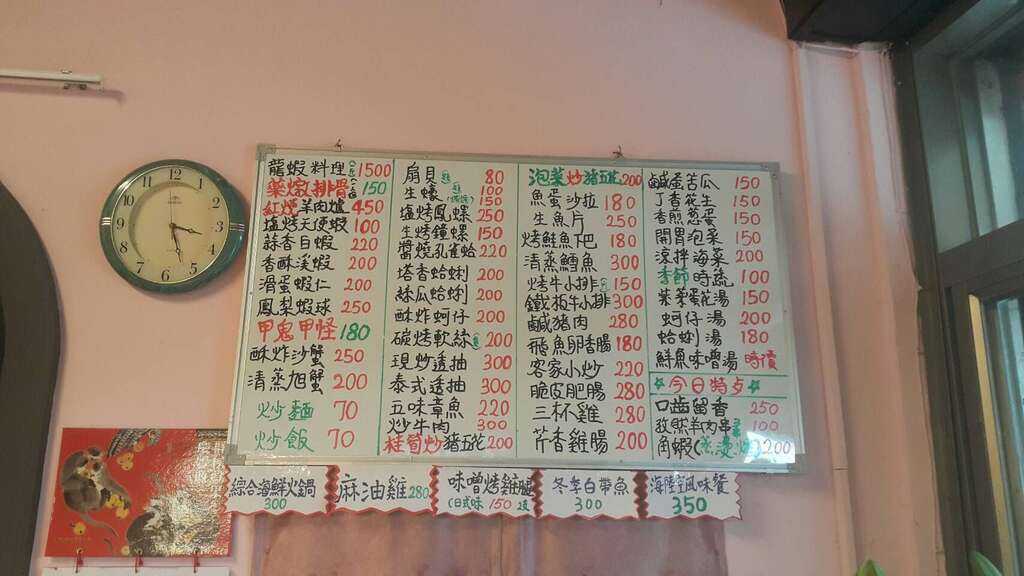 龍蝦料理 1500
藥燉排骨 150
紅燒羊肉爐 450
爐烤天使蝦 100
蒜香白蝦 220
香酥溪蝦 220
滑蛋蝦仁 200
鳳梨蝦球 250
甲鬼甲怪 180
酥炸沙蟹 250
清蒸旭蟹 200
炒麵 70
炒飯 70
扇貝 80
生蠔 100 150
爐烤鳳螺 250
生烤鐘螺 150
醬燒孔雀蛤 220
塔香蛤蜊 200
絲瓜蛤蜊 200
酥炸蚵仔 200
碳烤軟絲 200
現炒透抽 300
泰式透抽 300
五味章魚 220
炒牛肉 300
桂筍炒豬五花 200
泡菜炒豬五花 200
魚蛋沙拉 180
生魚片 250
烤鮭魚下巴 180
清蒸鱈魚 300
烤牛小排 150
鐵板牛小排 300
鹹豬肉 280
飛魚卵香腸 180
客家小炒 220
脆皮肥腸 280
三杯雞 280
芹香雞腸 200
鹹蛋苦瓜 150
丁香花生 150
香煎蔥蛋 150
開胃泡菜 150
涼拌海菜 200
季節時蔬 100
紫菜蛋花湯 150
蚵仔湯 200
蛤蜊湯 180
鮮魚味噌湯 時價
今日特点
口齒留香 250
孜然羊肉串 100
角蝦 200
綜合海鮮火鍋
300
麻油雞 280
味噌烤雞腿
(日式味 150
冬季白帶魚
300
風味餐
350
12 1 2 3 4 5 6 7 8 9 10 11